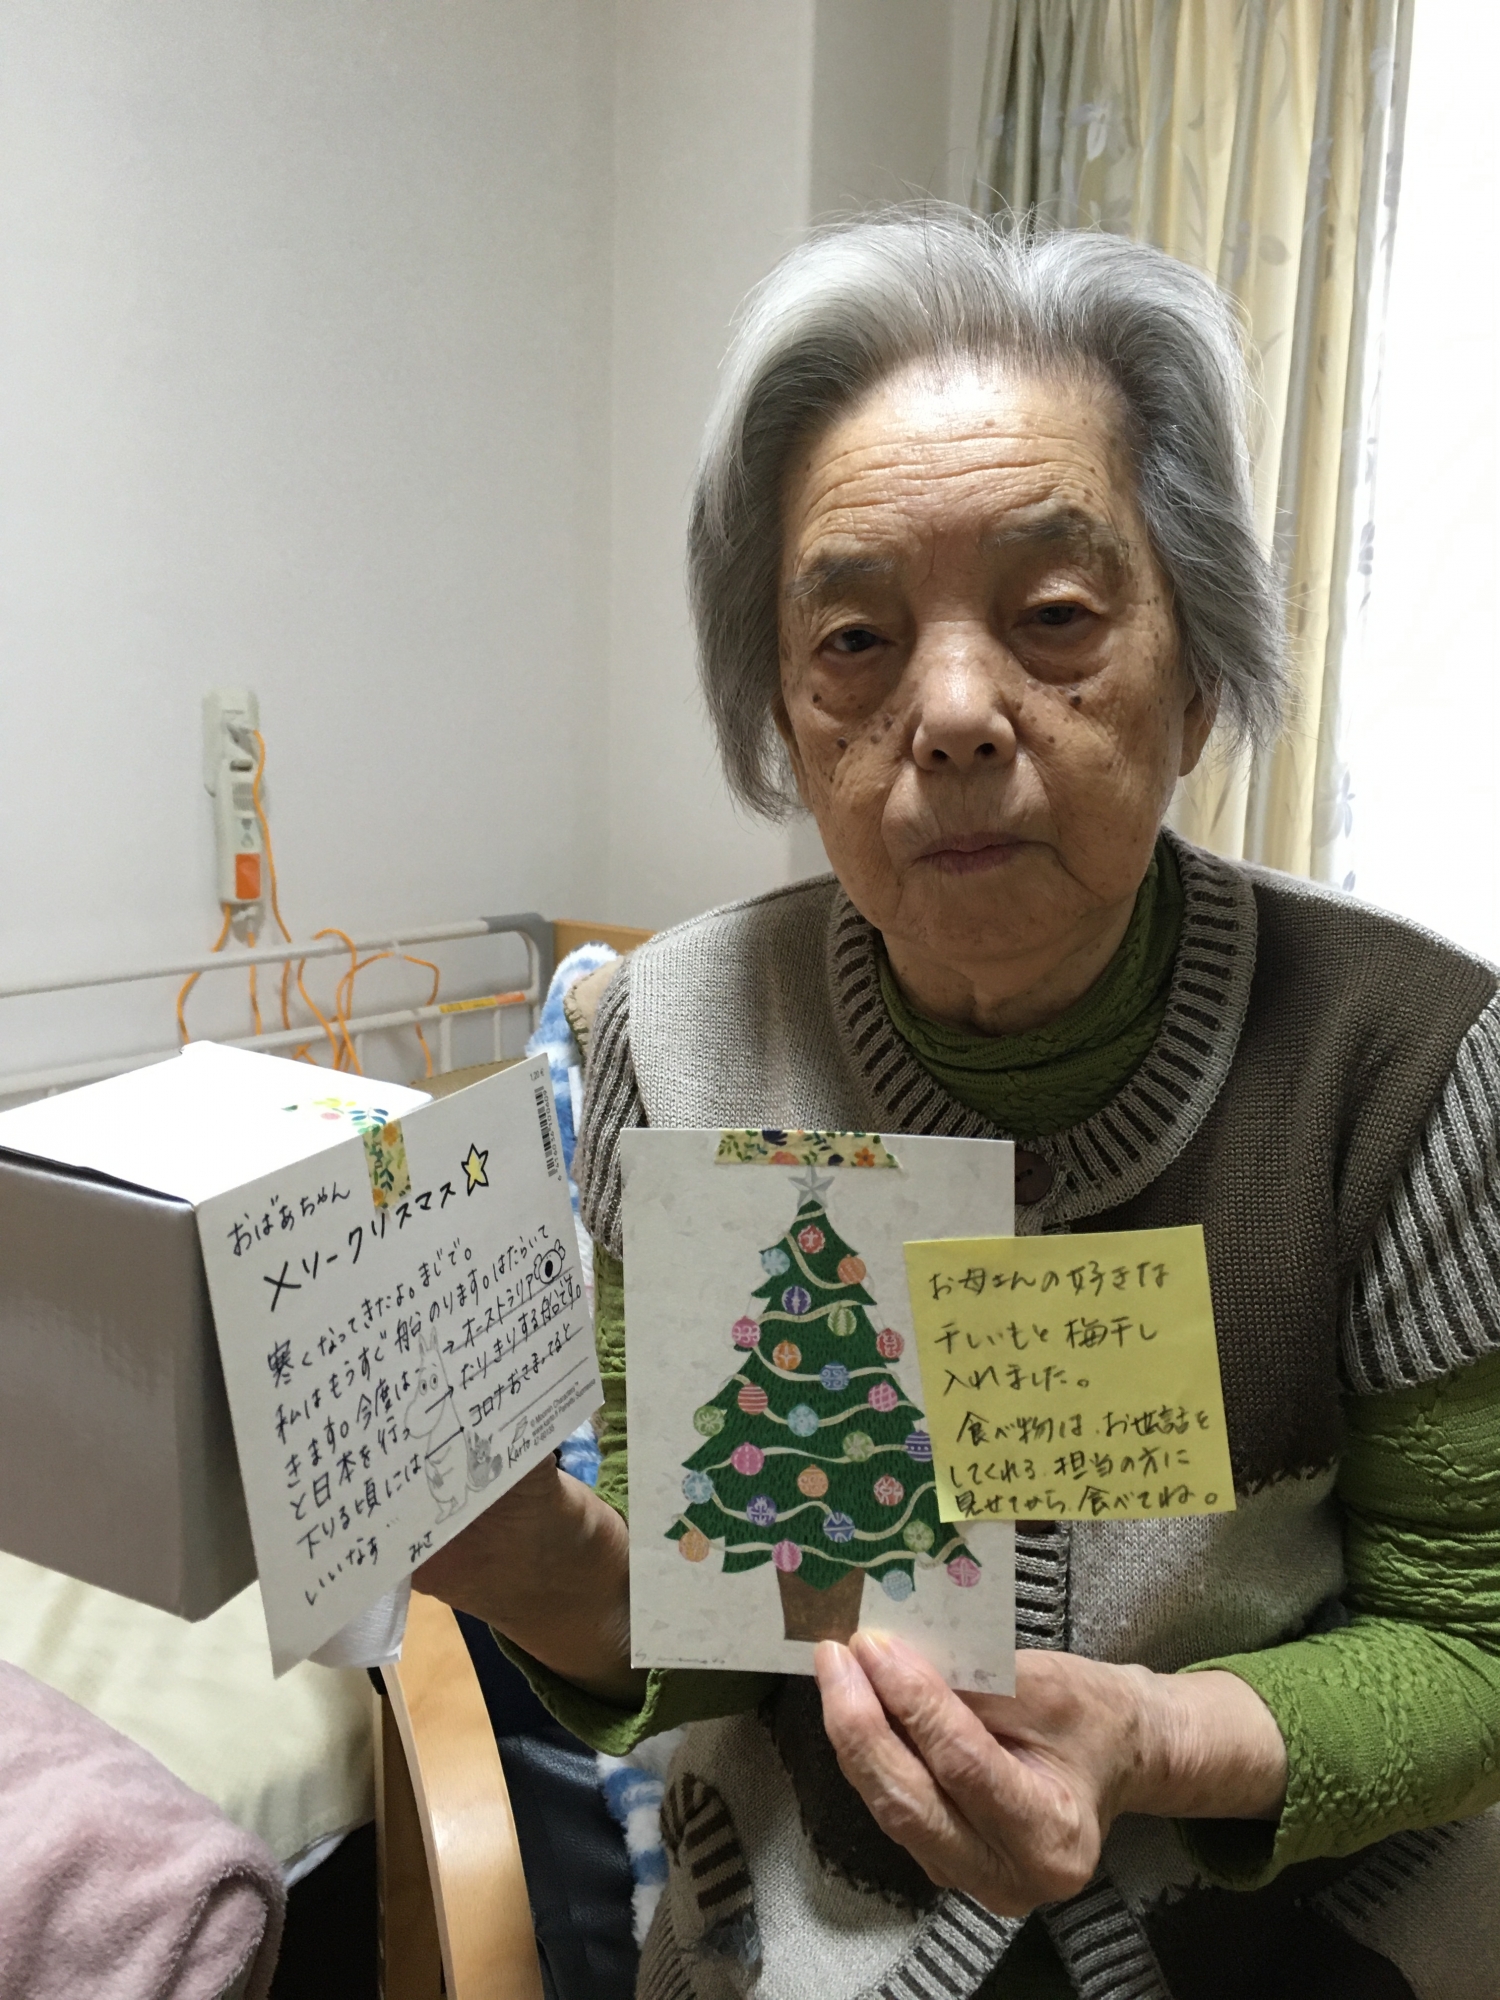 おばあちゃん
メリークリスマス
寒くなってきたよ。まじで。
私はもうすぐ船のります。はたらいて
きます。今度は→オーストラリア
と日本を行ったりきりする船です。
下りる頃にはコロナおさまってると
いいなぁ…
みさ
© Moomin Characters™
Karto
お母さんの好きな
干しいもと梅干し
入れました。
食べ物は、お世話を
してくれる、担当の方に
見せてから、食べてね。